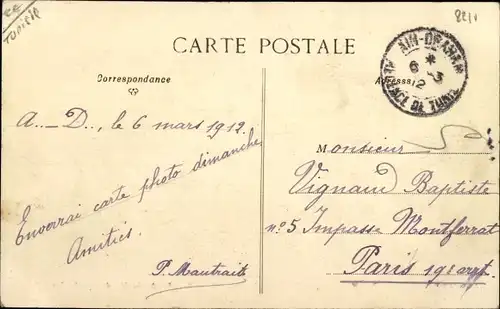 TUNISIE
CARTE POSTALE
AIN-DRAHAM
6 * 3
12
REGENCE DE TUNIS
Correspondance
Adresse
A... D.., le 6 mars 1912.
Enverrai carte photo dimanche
Amitiés.
P. Mautrait
Monsieur
Vignaud Baptiste
n° 5 Impasse Montferrat
Paris 19e arrt.